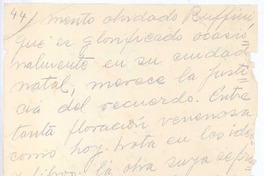 44) mento olvidado Ruffini,
que es glorificado ocasio
nalmente en su ciudad
natal, merece la justi
cia del recuerdo. Entre
tanta floración venenosa
como hoy brota en los idea
y libros, la obra suya es pre